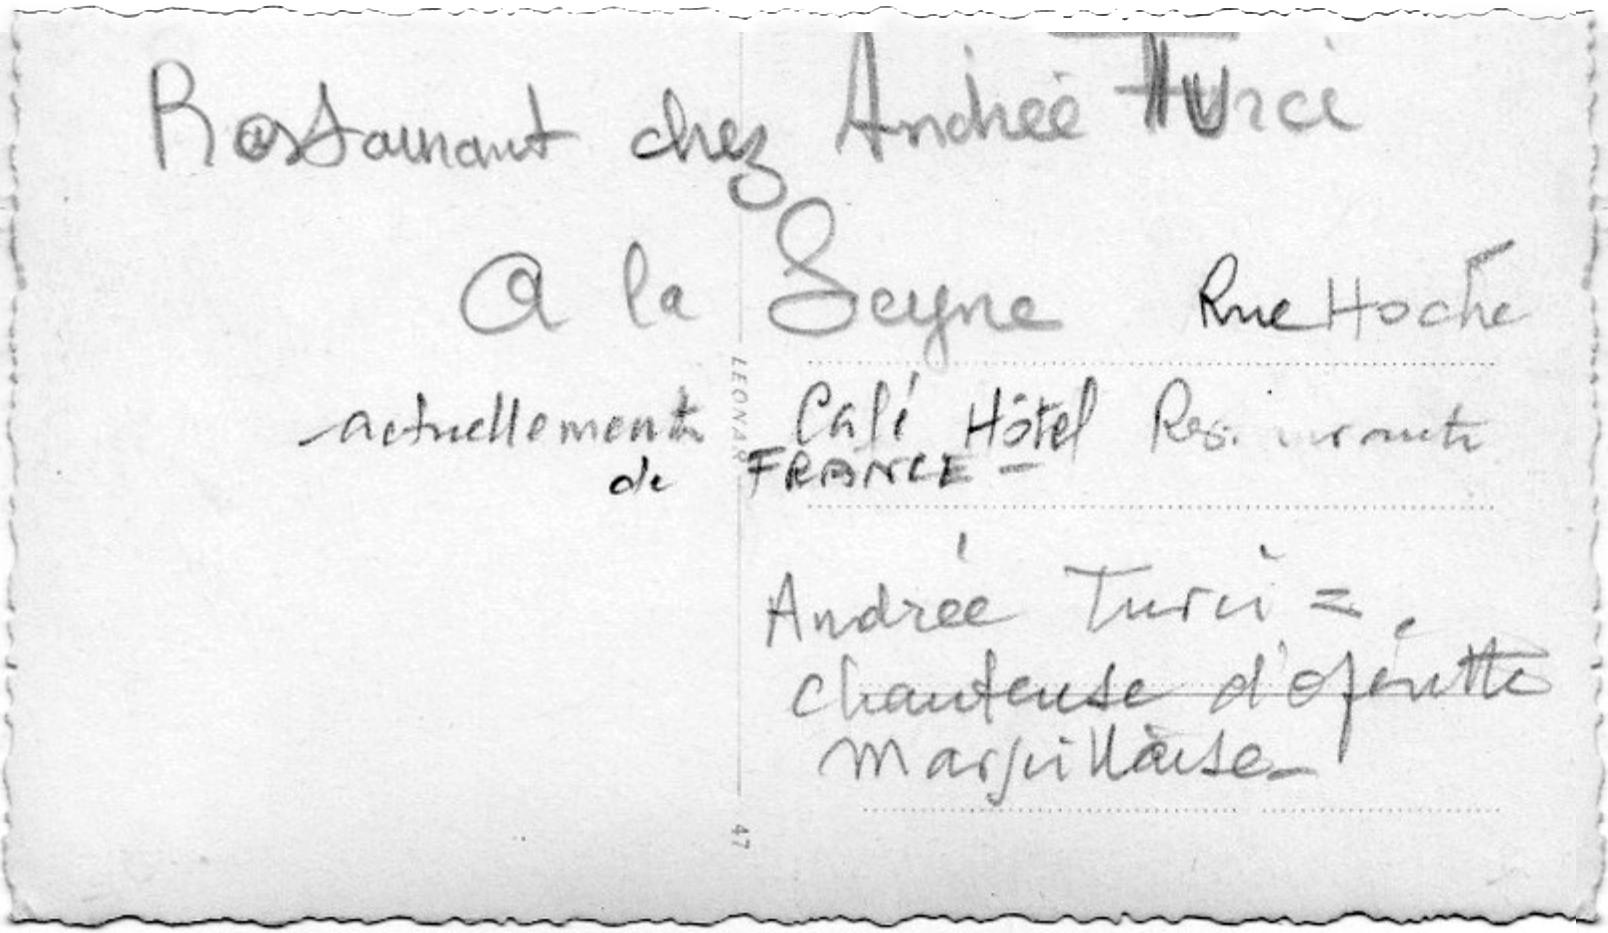 Restaurant chez Andrée Turci
A la Seyne Rue Hoche
actuellement Café Hôtel Restaurant
de FRANCE -
Andrée Turci =
chanteuse d'opérette
marseillaise -
LEONAR
47